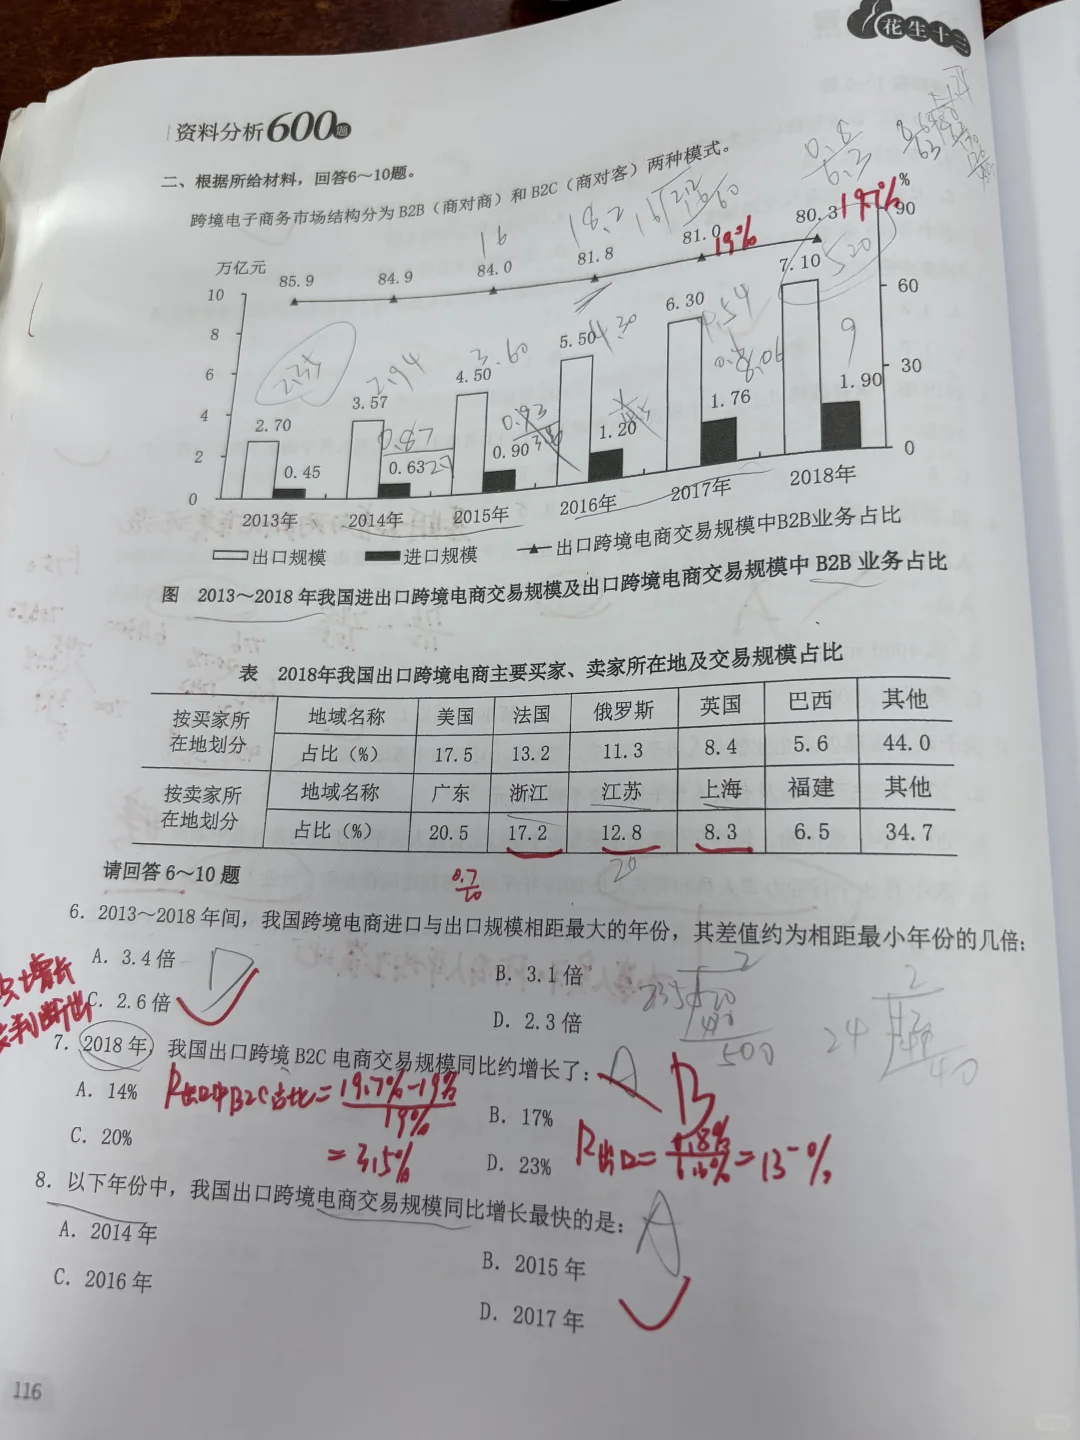 花生十三
资料分析600题
二、根据所给材料，回答6～10题。
跨境电子商务市场结构分为B2B（商对商）和B2C（商对客）两种模式。
0.8
6.3
16
18.2
19%
19.7%
520
万亿元
%
85.9 84.9 84.0 81.8 81.0 80.3
10 8 6 4 2 0
90 60 30 0
2.70 3.57 4.50 5.50 6.30 7.10
0.45 0.63 0.90 1.20 1.76 1.90
2.94 3.60 4.30 4.54
0.87 0.93
9
2013年 2014年 2015年 2016年 2017年 2018年
出口规模 进口规模 出口跨境电商交易规模中B2B业务占比
图 2013～2018年我国进出口跨境电商交易规模及出口跨境电商交易规模中B2B业务占比
表 2018年我国出口跨境电商主要买家、卖家所在地及交易规模占比
按买家所在地划分 地域名称 美国 法国 俄罗斯 英国 巴西 其他
占比（%） 17.5 13.2 11.3 8.4 5.6 44.0
按卖家所在地划分 地域名称 广东 浙江 江苏 上海 福建 其他
占比（%） 20.5 17.2 12.8 8.3 6.5 34.7
20
请回答6～10题
0.7
20
6. 2013～2018年间，我国跨境电商进口与出口规模相距最大的年份，其差值约为相距最小年份的几倍：
A. 3.4倍
B. 3.1倍
C. 2.6倍
D. 2.3倍
D
2
235
500
2
24
40
7. 2018年，我国出口跨境B2C电商交易规模同比约增长了：
A
B
A. 14%
B. 17%
C. 20%
D. 23%
R出口中B2C占比=19.7%-19%
19%
=3.5%
R出口=
=13-%
8. 以下年份中，我国出口跨境电商交易规模同比增长最快的是：
A
A. 2014年
B. 2015年
C. 2016年
D. 2017年
116